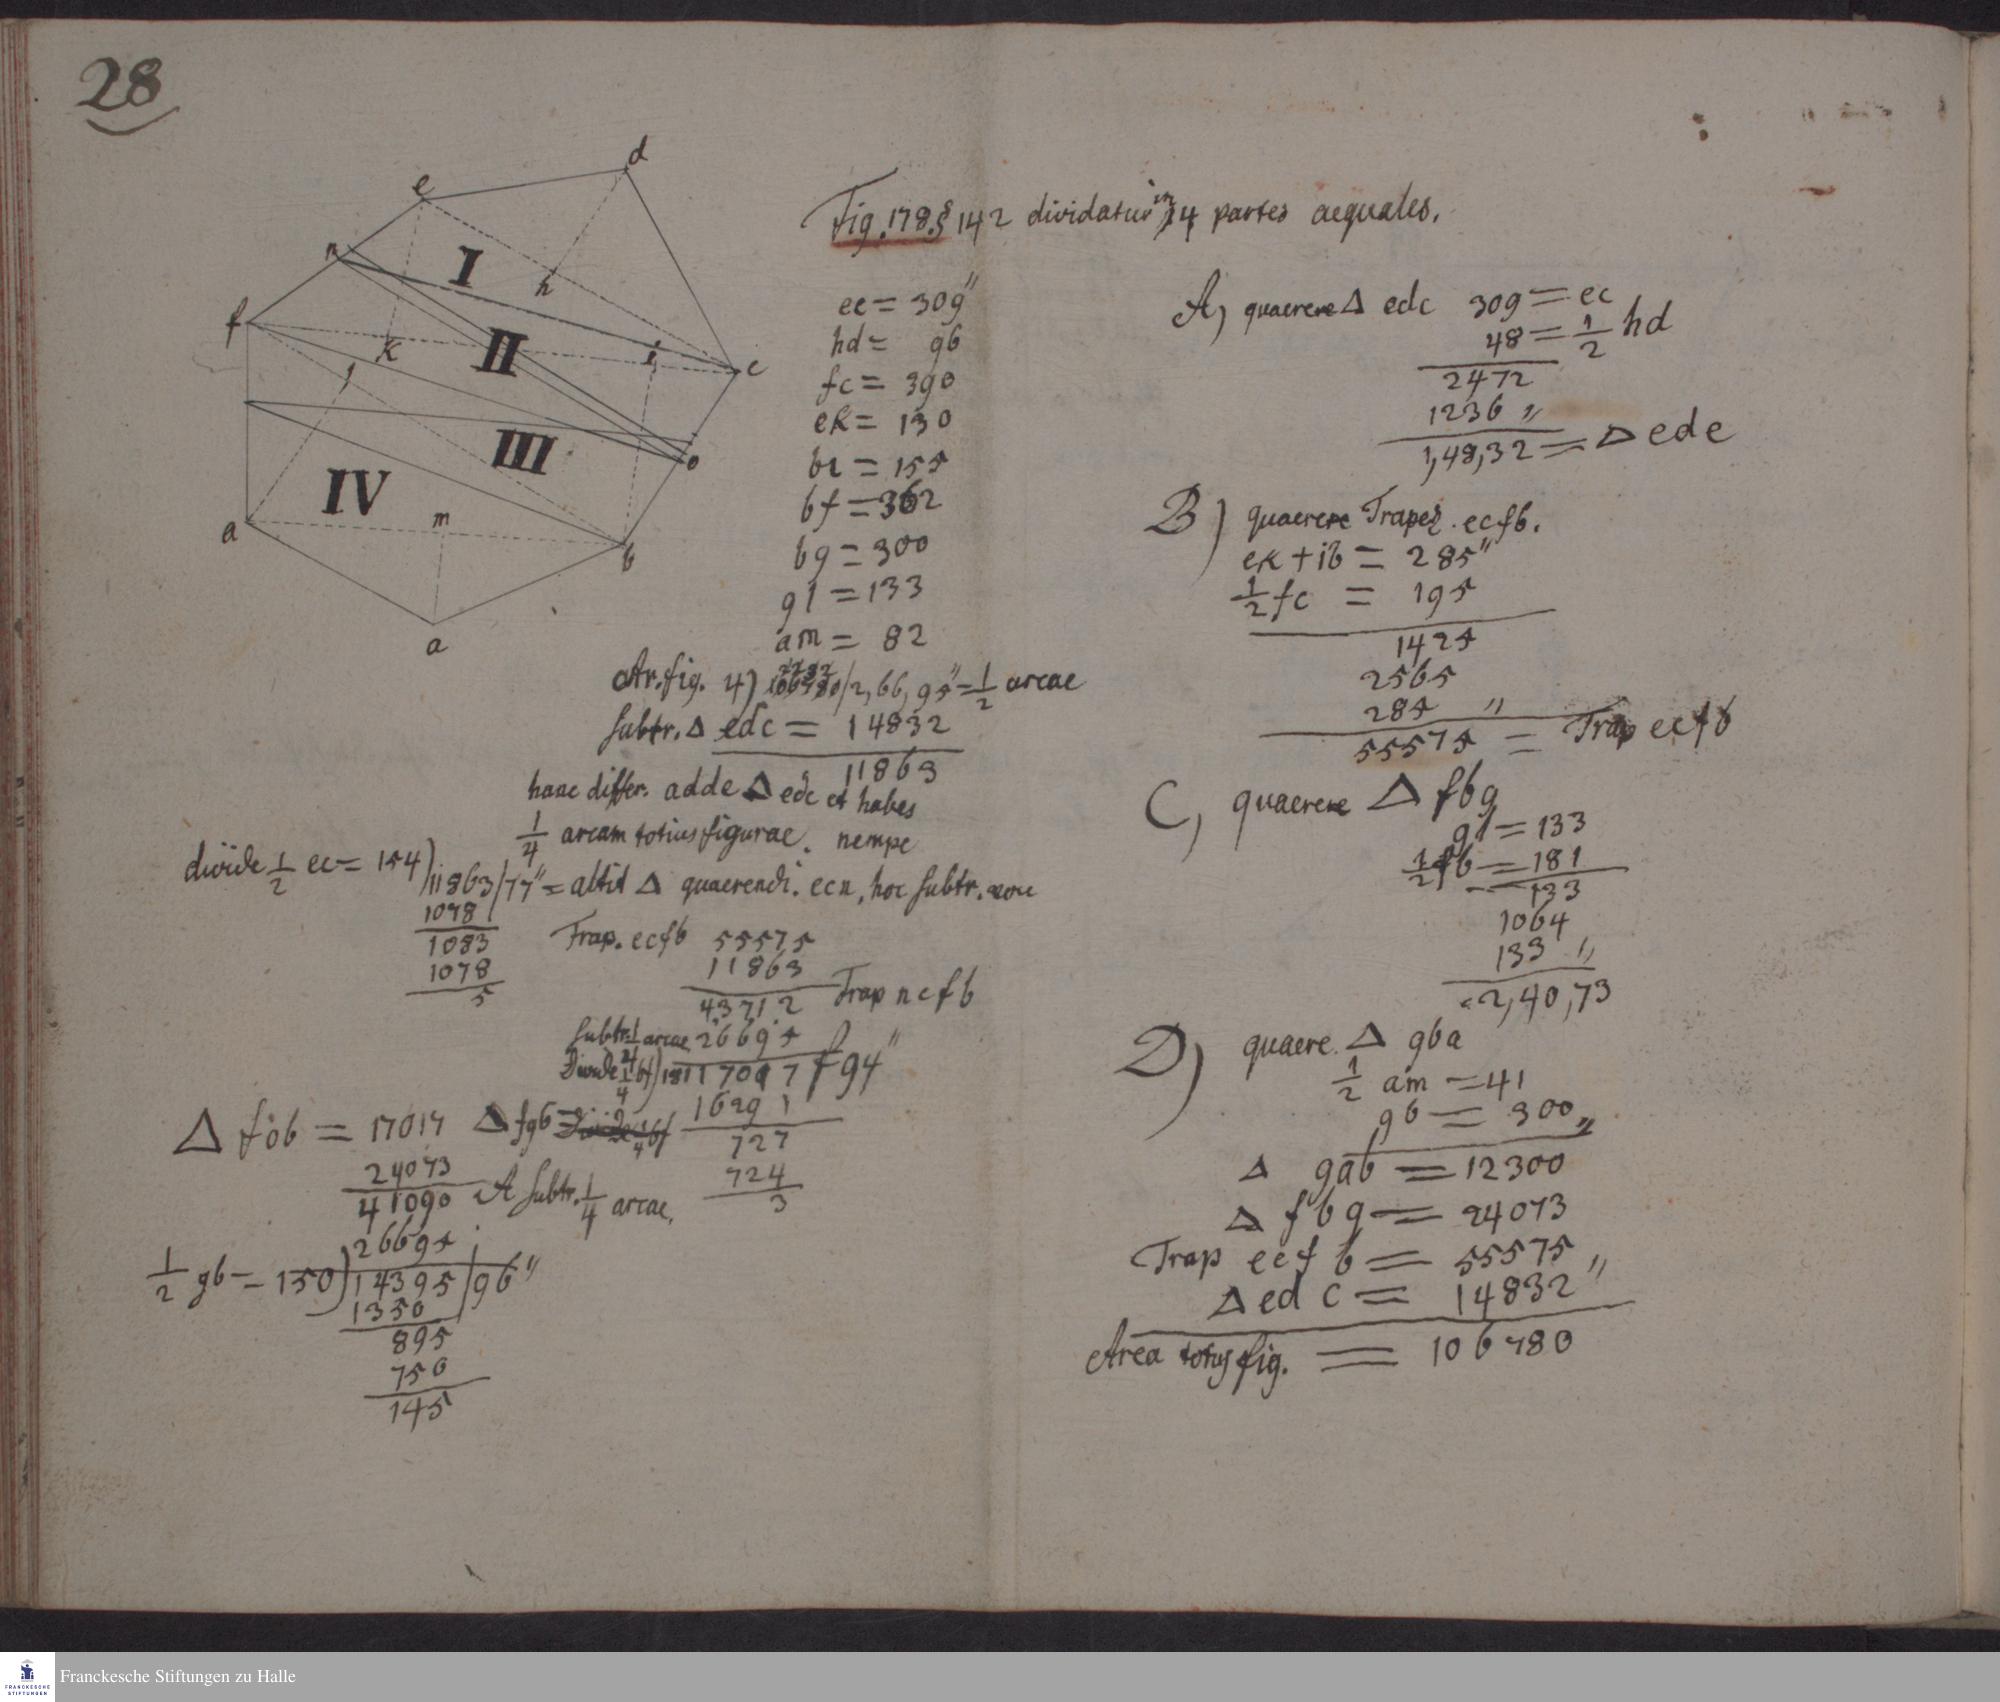 28
d
e
n
I
h
f
k
II
i
c
l
III
o
IV
a
m
b
a
Fig. 178. § 142 dividatur in 4 partes aequales.
ec = 309"
hd = 96
fc = 390
ek = 130
bi = 155
bf = 362
bg = 300
gl = 133
am = 82
Ar. fig. 4) 106780/2,66,95" = 1/2 areae
subtr. Δ edc = 14832
11863
hanc differ. adde Δ edc et habes
1/4 aream totius figurae. nempe
divide 1/2 ec = 154) 11863/77" = altit Δ quaerendi. ecn, hoc subtr.
1078
1083
1078
5
Trap. ecfb 55575
11863
43712 Trap ncfb
subtr. 1/4 areae 26695
Divide 1/4 bf) 181 17017 f 94"
16291
727
724
3
Δ fob = 17017 Δ fgb =
24073
41090 A subtr. 1/4 areae.
26695
1/2 gb = 150) 14395/96"
1350
895
750
145
A) quaerere Δ edc 309 = ec
48 = 1/2 hd
2472
1236 "
1,48,32 = Δ ede
B) quaerere Trapez. ecfb.
ek + ib = 285"
1/2 fc = 195
1425
2565
285 "
55575 = Trap ecfb
C, quaerere Δ fbg
gl = 133
1/2 fb = 181
133
1064
133 "
2,40,73
D) quaere. Δ gba
1/2 am = 41
gb = 300"
Δ gab = 12300
Δ fbg = 24073
Trap ecfb = 55575
Δ edc = 14832"
Area totus fig. = 106780
FRANCKESCHE
STIFTUNGEN
Franckesche Stiftungen zu Halle